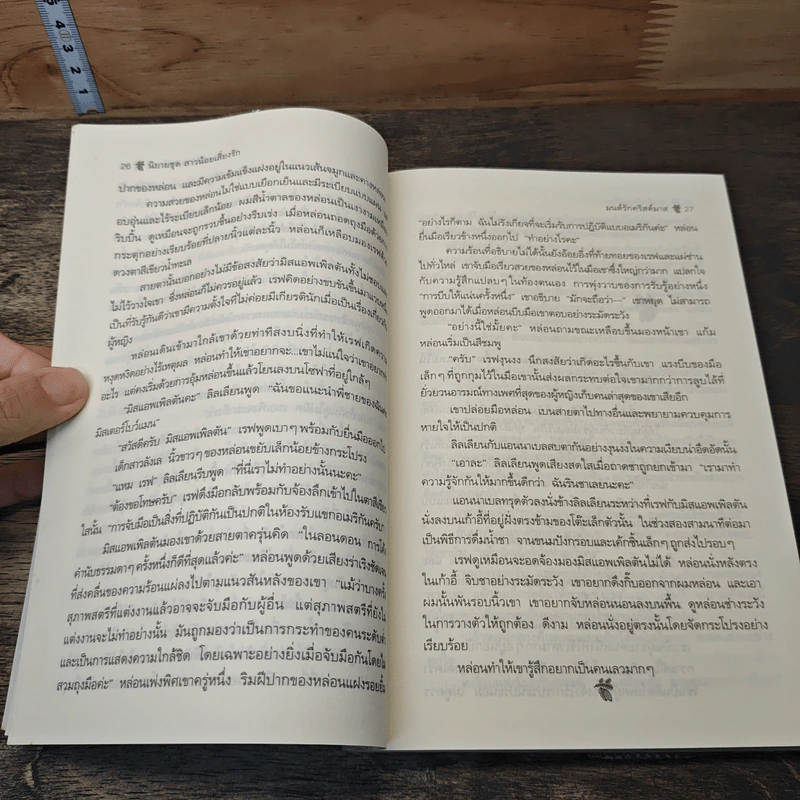 5 4 3 2 1
26 นิยายชุด สาวน้อยเสี่ยงรัก
ปากของหล่อน และมีความเข้มแข็งแฝงอยู่ในแนวเส้นจมูกและคางหล่อน
ความสวยของหล่อนไม่ใช่แบบเยือกเย็นและมีระเบียบแบบแผน
อบอุ่นและไร้ระเบียบเล็กน้อย ผมสีน้ำตาลของหล่อนเป็นเงางาม
ริบบิ้น ดูเหมือนจะถูกรวบขึ้นอย่างรีบเร่ง เมื่อหล่อนถอดถุงมือด้วย
กระตุกอย่างเรียบร้อยที่ปลายนิ้วแต่ละนิ้ว หล่อนก็เหลือบมองเรฟ
ดวงตาสีเขียวน้ำทะเล
สายตานั้นบอกอย่างไม่มีข้อสงสัยว่ามิสแอพเพิลตันทั้งไม่ชอบและ
ไม่ไว้วางใจเขา ซึ่งหล่อนก็ไม่ควรอยู่แล้ว เรฟคิดอย่างขบขัน
เป็นที่รับรู้กันดีว่าเขามีความตั้งใจที่ไม่ค่อยมีเกียรตินักเมื่อเป็นเรื่องเกี่ยวกับ
ผู้หญิง
หล่อนเดินเข้ามาใกล้เขาด้วยท่าทีสงบนิ่งที่ทำให้เรฟเกิดความ
หงุดหงิดอย่างไร้เหตุผล หล่อนทำให้เขาอยากจะ...เขาไม่แน่ใจว่าเขาอยาก
อะไร แต่คงเริ่มด้วยการอุ้มหล่อนขึ้นแล้วโยนลงบนโซฟาที่อยู่ใกล้ๆ
“มิสแอพเพิลตันคะ” ลิลเลียนพูด “ฉันขอแนะนำพี่ชายของฉัน
มิสเตอร์โบว์แมน”
“สวัสดีครับ มิสแอพเพิลตัน” เรฟพูดเบาๆ พร้อมกับยื่นมือออกไป
เด็กสาวลังเล นิ้วขาวๆ ของหล่อนขยับเล็กน้อยข้างกระโปรง
“แหม เรฟ” ลิลเลียนรีบพูด “ที่นี่เราไม่ทำอย่างนั้นนะคะ”
“ต้องขอโทษครับ” เรฟดึงมือกลับพร้อมกับจ้องลึกเข้าไปในตาสีเขียว
ใสนั้น “การจับมือเป็นสิ่งที่ปฏิบัติกันเป็นปกติในห้องรับแขกอเมริกันครับ”
มิสแอพเพิลตันมองเขาด้วยสายตาครุ่นคิด “ในลอนดอน การโค้ง
คำนับธรรมดาๆ ครั้งหนึ่งก็ดีที่สุดแล้วค่ะ” หล่อนพูดด้วยเสียงร่าเริงชัดเจน
ที่ส่งคลื่นของความร้อนแผ่ลงไปตามแนวสันหลังของเขา “แม้ว่าบางครั้ง
สุภาพสตรีที่แต่งงานแล้วอาจจะจับมือกับผู้อื่น แต่สุภาพสตรีที่ยังไม่
แต่งงานจะไม่ทำอย่างนั้น มันถูกมองว่าเป็นการกระทำของคนระดับต่ำ
และเป็นการแสดงความใกล้ชิด โดยเฉพาะอย่างยิ่งเมื่อจับมือกันโดยไม่
สวมถุงมือค่ะ” หล่อนเพ่งพิศเขาครู่หนึ่ง ริมฝีปากของหล่อนแฝงรอยยิ้ม
มนต์รักคริสต์มาส 27
“อย่างไรก็ตาม ฉันไม่รังเกียจที่จะเริ่มรับการปฏิบัติแบบอเมริกันค่ะ” หล่อน
ยื่นมือเรียวข้างหนึ่งออกไป “ทำอย่างไรคะ”
ความร้อนที่อธิบายไม่ได้นั้นยังอ้อยอิ่งที่ท้ายทอยของเรฟและแผ่ซ่าน
ไปทั่วไหล่ เขาจับมือเรียวสวยของหล่อนไว้ในมือเขาซึ่งใหญ่กว่ามาก แปลกใจ
กับความรู้สึกแปลบๆ ในท้องตนเอง การพุ่งวาบของการรับรู้อย่างหนึ่ง
“การบีบให้แน่นครั้งหนึ่ง” เขาอธิบาย “มักจะถือว่า—” เขาหยุด ไม่สามารถ
พูดออกมาได้เมื่อหล่อนบีบมือเขาตอบอย่างระมัดระวัง
“อย่างนี้ใช่มั้ยคะ” หล่อนถามขณะเหลือบขึ้นมองหน้าเขา แก้ม
หล่อนเริ่มเป็นสีชมพู
“ครับ” เรฟงุนงง นึกสงสัยว่าเกิดอะไรขึ้นกับเขา แรงบีบของมือ
เล็กๆ ที่ถูกกุมไว้ในมือเขานั้นส่งผลกระทบต่อใจเขามากกว่าการลูบไล้ที่
ยั่วยวนอารมณ์ทางเพศที่สุดของผู้หญิงเก็บคนล่าสุดของเขาเสียอีก
เขาปล่อยมือหล่อน เบนสายตาไปทางอื่นและพยายามควบคุมการ
หายใจให้เป็นปกติ
ลิลเลียนกับแอนนาเบลสบตากันอย่างงุนงงในความเงียบน่าอึดอัดนั้น
“เอาละ” ลิลเลียนพูดเสียงสดใสเมื่อถาดชาถูกยกเข้ามา “เรามาทำ
ความรู้จักกันให้มากขึ้นดีกว่า ฉันรินชาเลยนะคะ”
แอนนาเบลทรุดตัวลงนั่งข้างลิลเลียนระหว่างที่เรฟกับมิสแอพเพิลตัน
นั่งลงบนเก้าอี้ที่อยู่ฝั่งตรงข้ามของโต๊ะเล็กตัวนั้น ในช่วงสองสามนาทีต่อมา
เป็นพิธีการดื่มน้ำชา จานขนมปังกรอบและเค้กชิ้นเล็กๆ ถูกส่งไปรอบๆ
เรฟดูเหมือนจะอดจ้องมองมิสแอพเพิลตันไม่ได้ หล่อนนั่งหลังตรง
ในเก้าอี้ จิบชาอย่างระมัดระวัง เขาอยากดึงกิ๊บออกจากผมหล่อน และเอา
ผมนั้นพันรอบนิ้วเขา เขาอยากจับหล่อนนอนลงบนพื้น ดูหล่อนช่างระวัง
ในการวางตัวให้ถูกต้อง ดีงาม หล่อนนั่งอยู่ตรงนั้นโดยจัดกระโปรงอย่าง
เรียบร้อย
หล่อนทำให้เขารู้สึกอยากเป็นคนเลวมากๆ